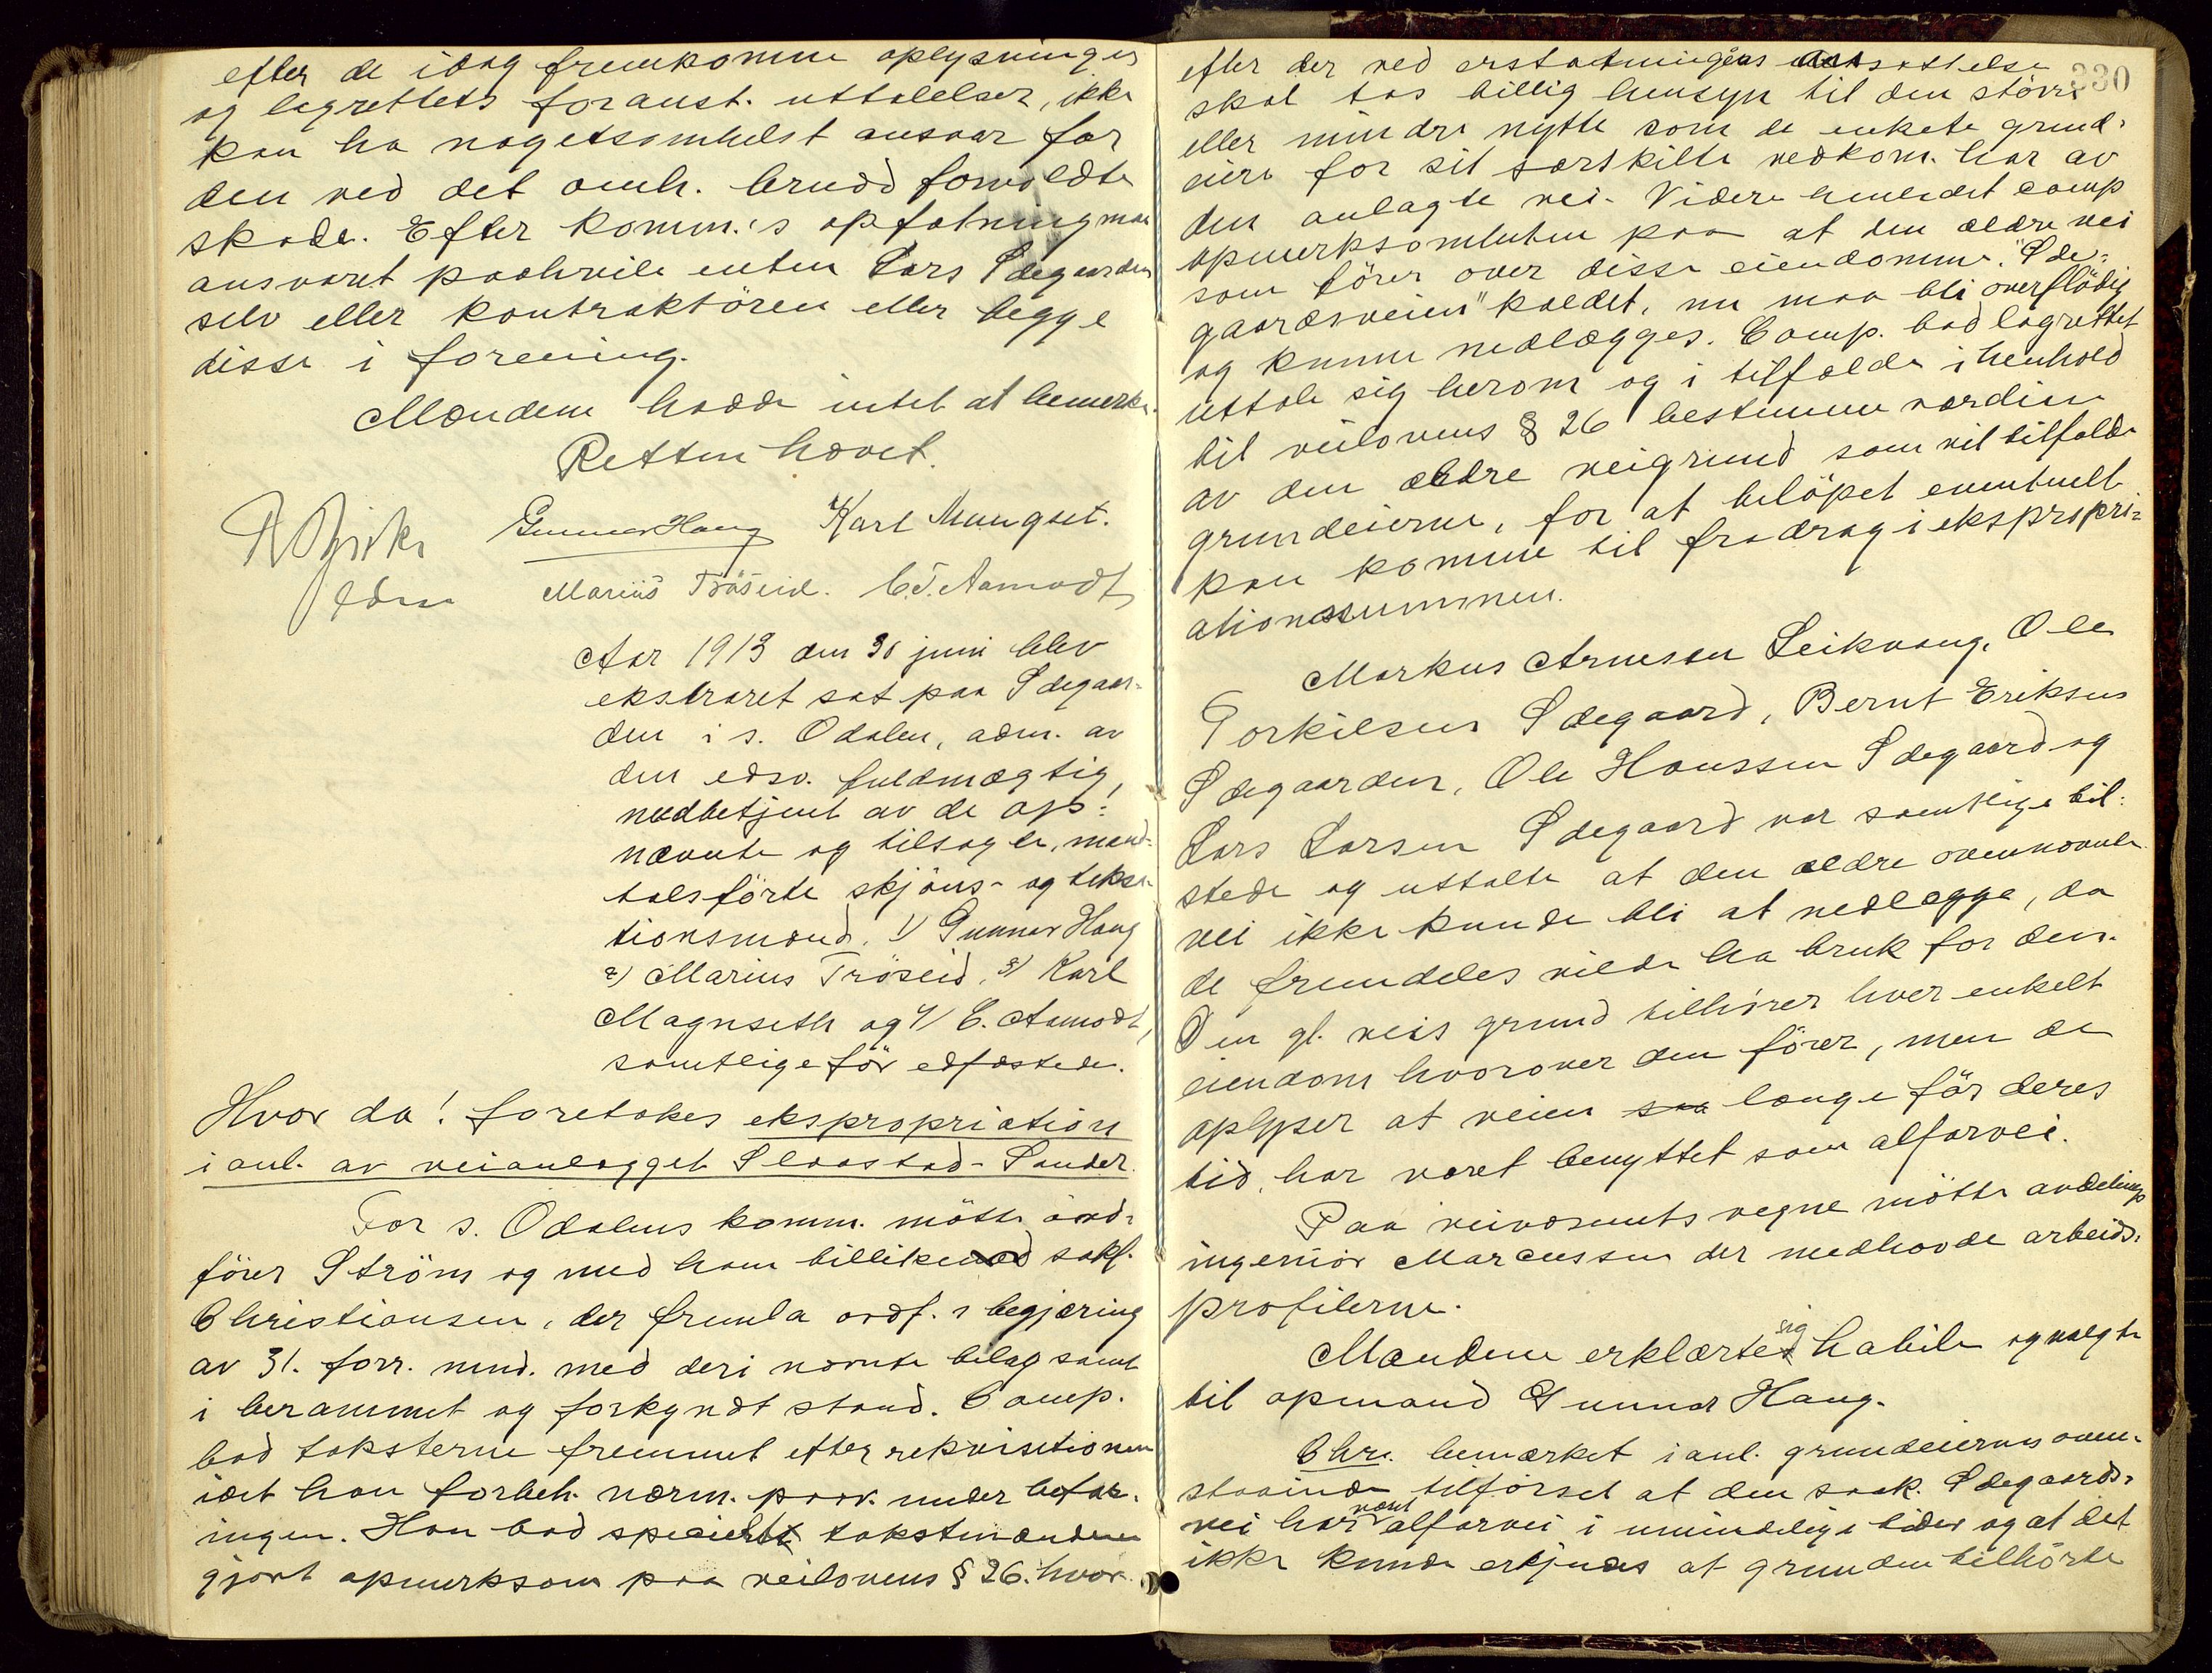 efter de idag fremkomne oplysninger
og lagrettets foranst. uttalelser, ikke
kan ha nogetsomhelst ansvar for
den ved det omh. brudd forvoldte
skade. Efter komm.'s opfatning maa
ansvaret paahvile enten Lars Ødegaarden
selv eller kontraktören eller begge
disse i forening.
Mændene hadde intet at bemerke.
Retten hævet.
Gunnar Haug Karl Mungset.
edsv. Marius Tröseid. C.T. Aamodt
Aar 1913 den 30 juni blev
ekstraret sat paa Ødegaar-
den i s. Odalen, adm. av
den edsv. fuldmægtig,
medbetjent av de op-
nævnte og tilsagte, mand-
talsförte skjöns- og taksa-
tionsmænd. 1/ Gunnar Haug
2) Marius Tröseid, 3/ Karl
Magnseth og 4/ C. Aamodt,
samtlige för edfæstede.
Hvor da! foretokes ekspropriation
i anl. av veianlægget Slaastad-Sander.
For s. Odalens komm. mötte ord-
förer Ström og med ham tillike sakf.
Christiansen, der fremla ordf.s begjæring
av 31. forr. mnd. med deri nævnte bilag samt
i berammet og forkyndt stand. Comp.
bad taksterne fremmet efter rekvisitionen
idet han forbeh. nærm. paav. under befar-
ingen. Han bad specielt takstmændene
gjort opmerksom paa veilovens § 26. hvor-
330
efter der ved erstatningens ansættelse
skal tas billig hensyn til den större
eller mindre nytte som de enkete grund-
eiere for sit særskilte vedkom. har av
den anlagte vei. Videre henledet comp
opmerksomheten paa at den ældre vei
som förer over disse eiendomme. "Øde-
gaardsveien" kaldet, nu maa bli overflödig
og kunne nedlægges. Comp. bad lagrettet
uttale sig herom og i tilfælde i henhold
til veilovens § 26 bestemme værdien
av den ældre veigrund som vil tilfalde
grundeierne, for at belöpet eventuelt
kan komme til fradrag i ekspropri-
ationssummen.
Markus Arnesen Leikvang, Ole
Torkilsen Ødegaard, Bernt Eriksen
Ødegaarden, Ole Hanssen Ødegaard og
Lars Larsen Ødegaard var samtlige til-
stede og uttalte at den ældre ovennævnte
vei ikke kunde bli at nedlægge, da
de fremdeles vilde ha bruk for den.
Den gl. veis grund tilhörer hver enkelt
eiendom hvorover den förer, men de
oplyser at veien saa længe för deres
tid, har været benyttet som alfarvei.
Paa veivæsenets vegne mötte avdelings
ingeniör Marcussen der medhavde arbeids-
profilerne.
Mændene erklærte sig habile og valgte
til opmand Gunnar Haug.
Chr. bemærket i anl. grundeiernes oven-
staaende tilförsel at den saak. Ødegaards-
vei har vært alfarvei i umindelige tider og at det
ikke kunde erkjendes at grunden tilhörte